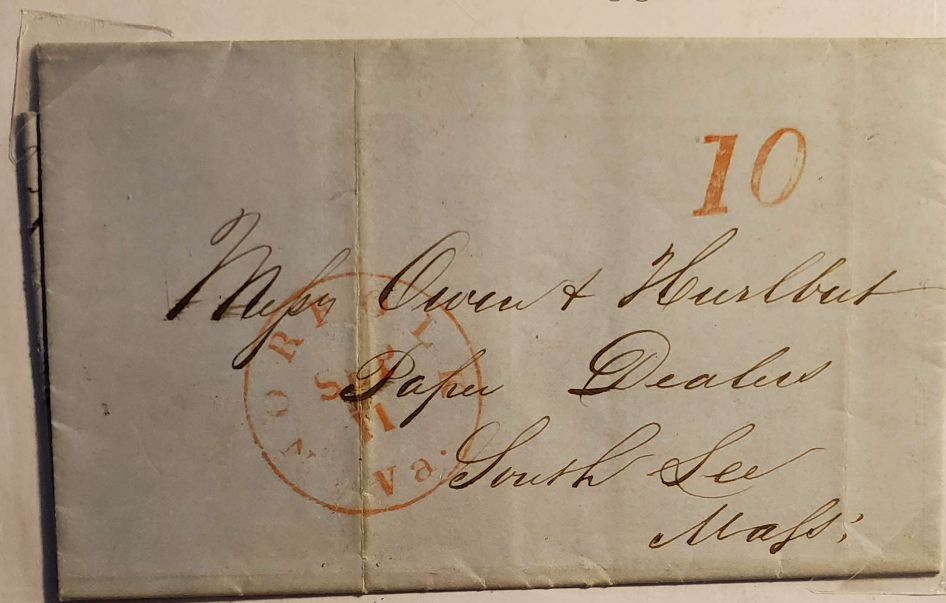 10
Messrs Owen & Hurlbut
Paper Dealers
South Lee
Mass:
NORFOLK
SEP
11
Va.